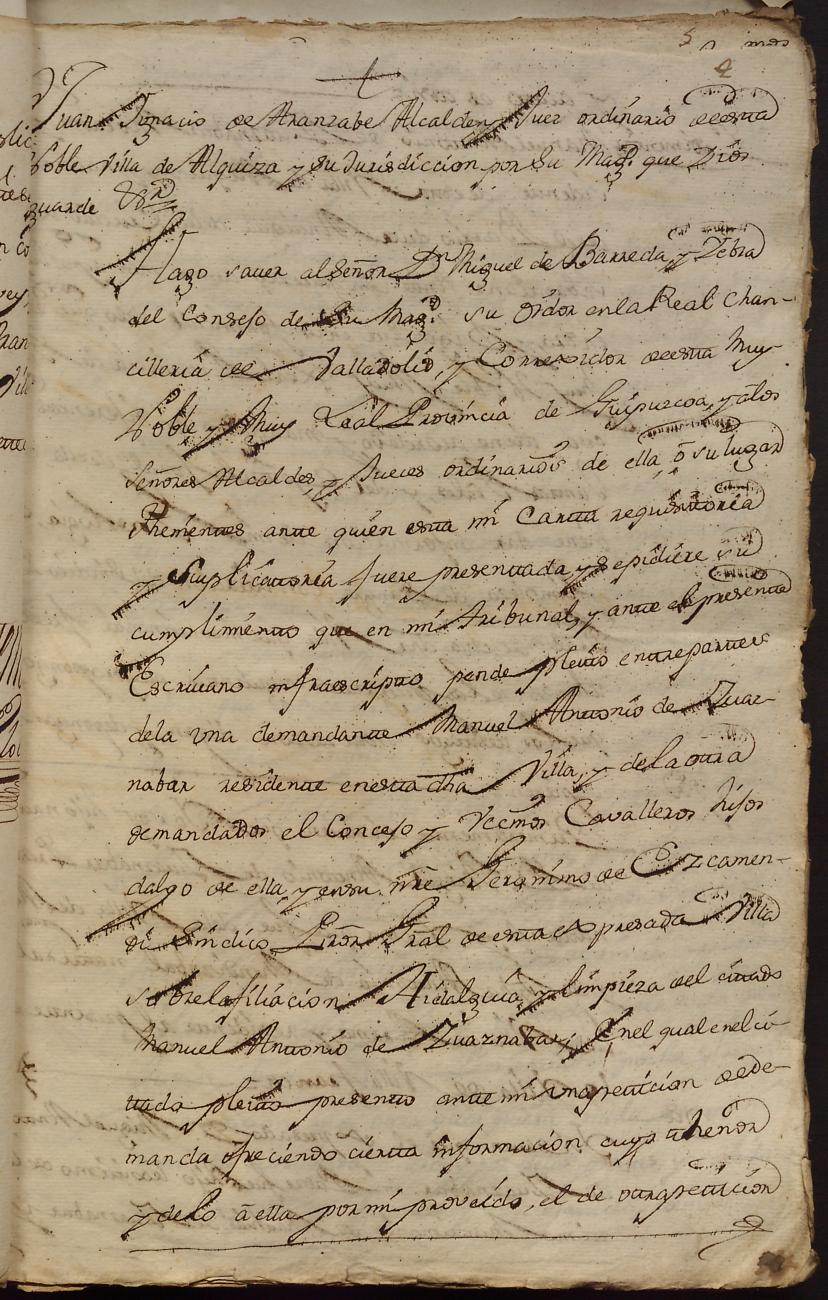 Juan Ignacio de Aranzabe Alcalde y Juez ordinario de esta
Noble Villa de Alquiza y su Jurisdiccion por Su Magd. que Dios
guarde &ra
Hago saver al Señor Dn Miguel de Barreda, y Zebra
del Consejo de Su Magd. su oidor en la Real Chan-
cilleria de Valladolid, y Correxidor de esta Muy
Noble y Muy Leal Provincia de Guipuzcoa, y a los
Señores Alcaldes, y Jueces ordinarios de ella, ô su lugar
Thenientes ante quien esta mi Carta requisitoria
y Suplicatoria fuere presentada y se pidiere su
cumplimiento que en mi tribunal, y ante el presente
Escrivano infraescripto pende pleito entre partes
de la una demandante Manuel Antonio de Zuaz-
nabar residente en esta dha Villa, y de la otra
demandados el Concejo y Vecinos Cavalleros hijos
dalgo de ella y en su nre Geronimo de Ezcamen-
di Sindico Pror Gral de esta expresada Villa
sobre la filiacion Hidalguia, y limpieza del citado
Manuel Antonio de Zuaznabar; En el qual en el ci-
tado pleito presento ante mi una peticion de de-
manda ofreciendo cierta informacion cuyo thenor
y de lo â ella por mi proveido, el de otra peticion